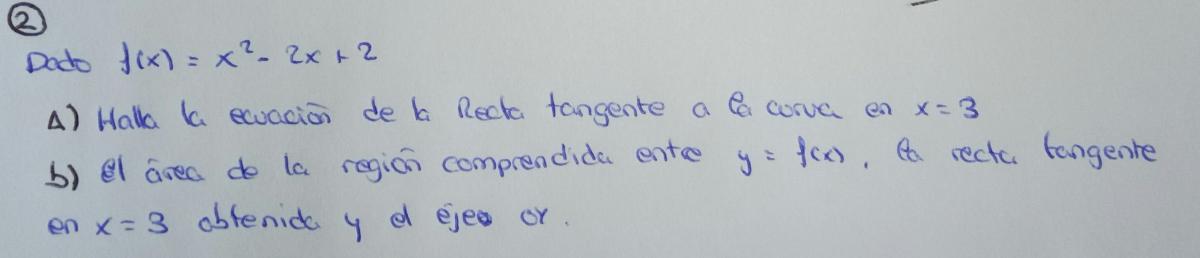 ②
Dado f(x) = x² - 2x + 2
A) Halla la ecuación de la Recta tangente a la curva en x = 3
b) El área de la región comprendida entre y = f(x), la recta tangente
en x = 3 obtenida y el eje OY.